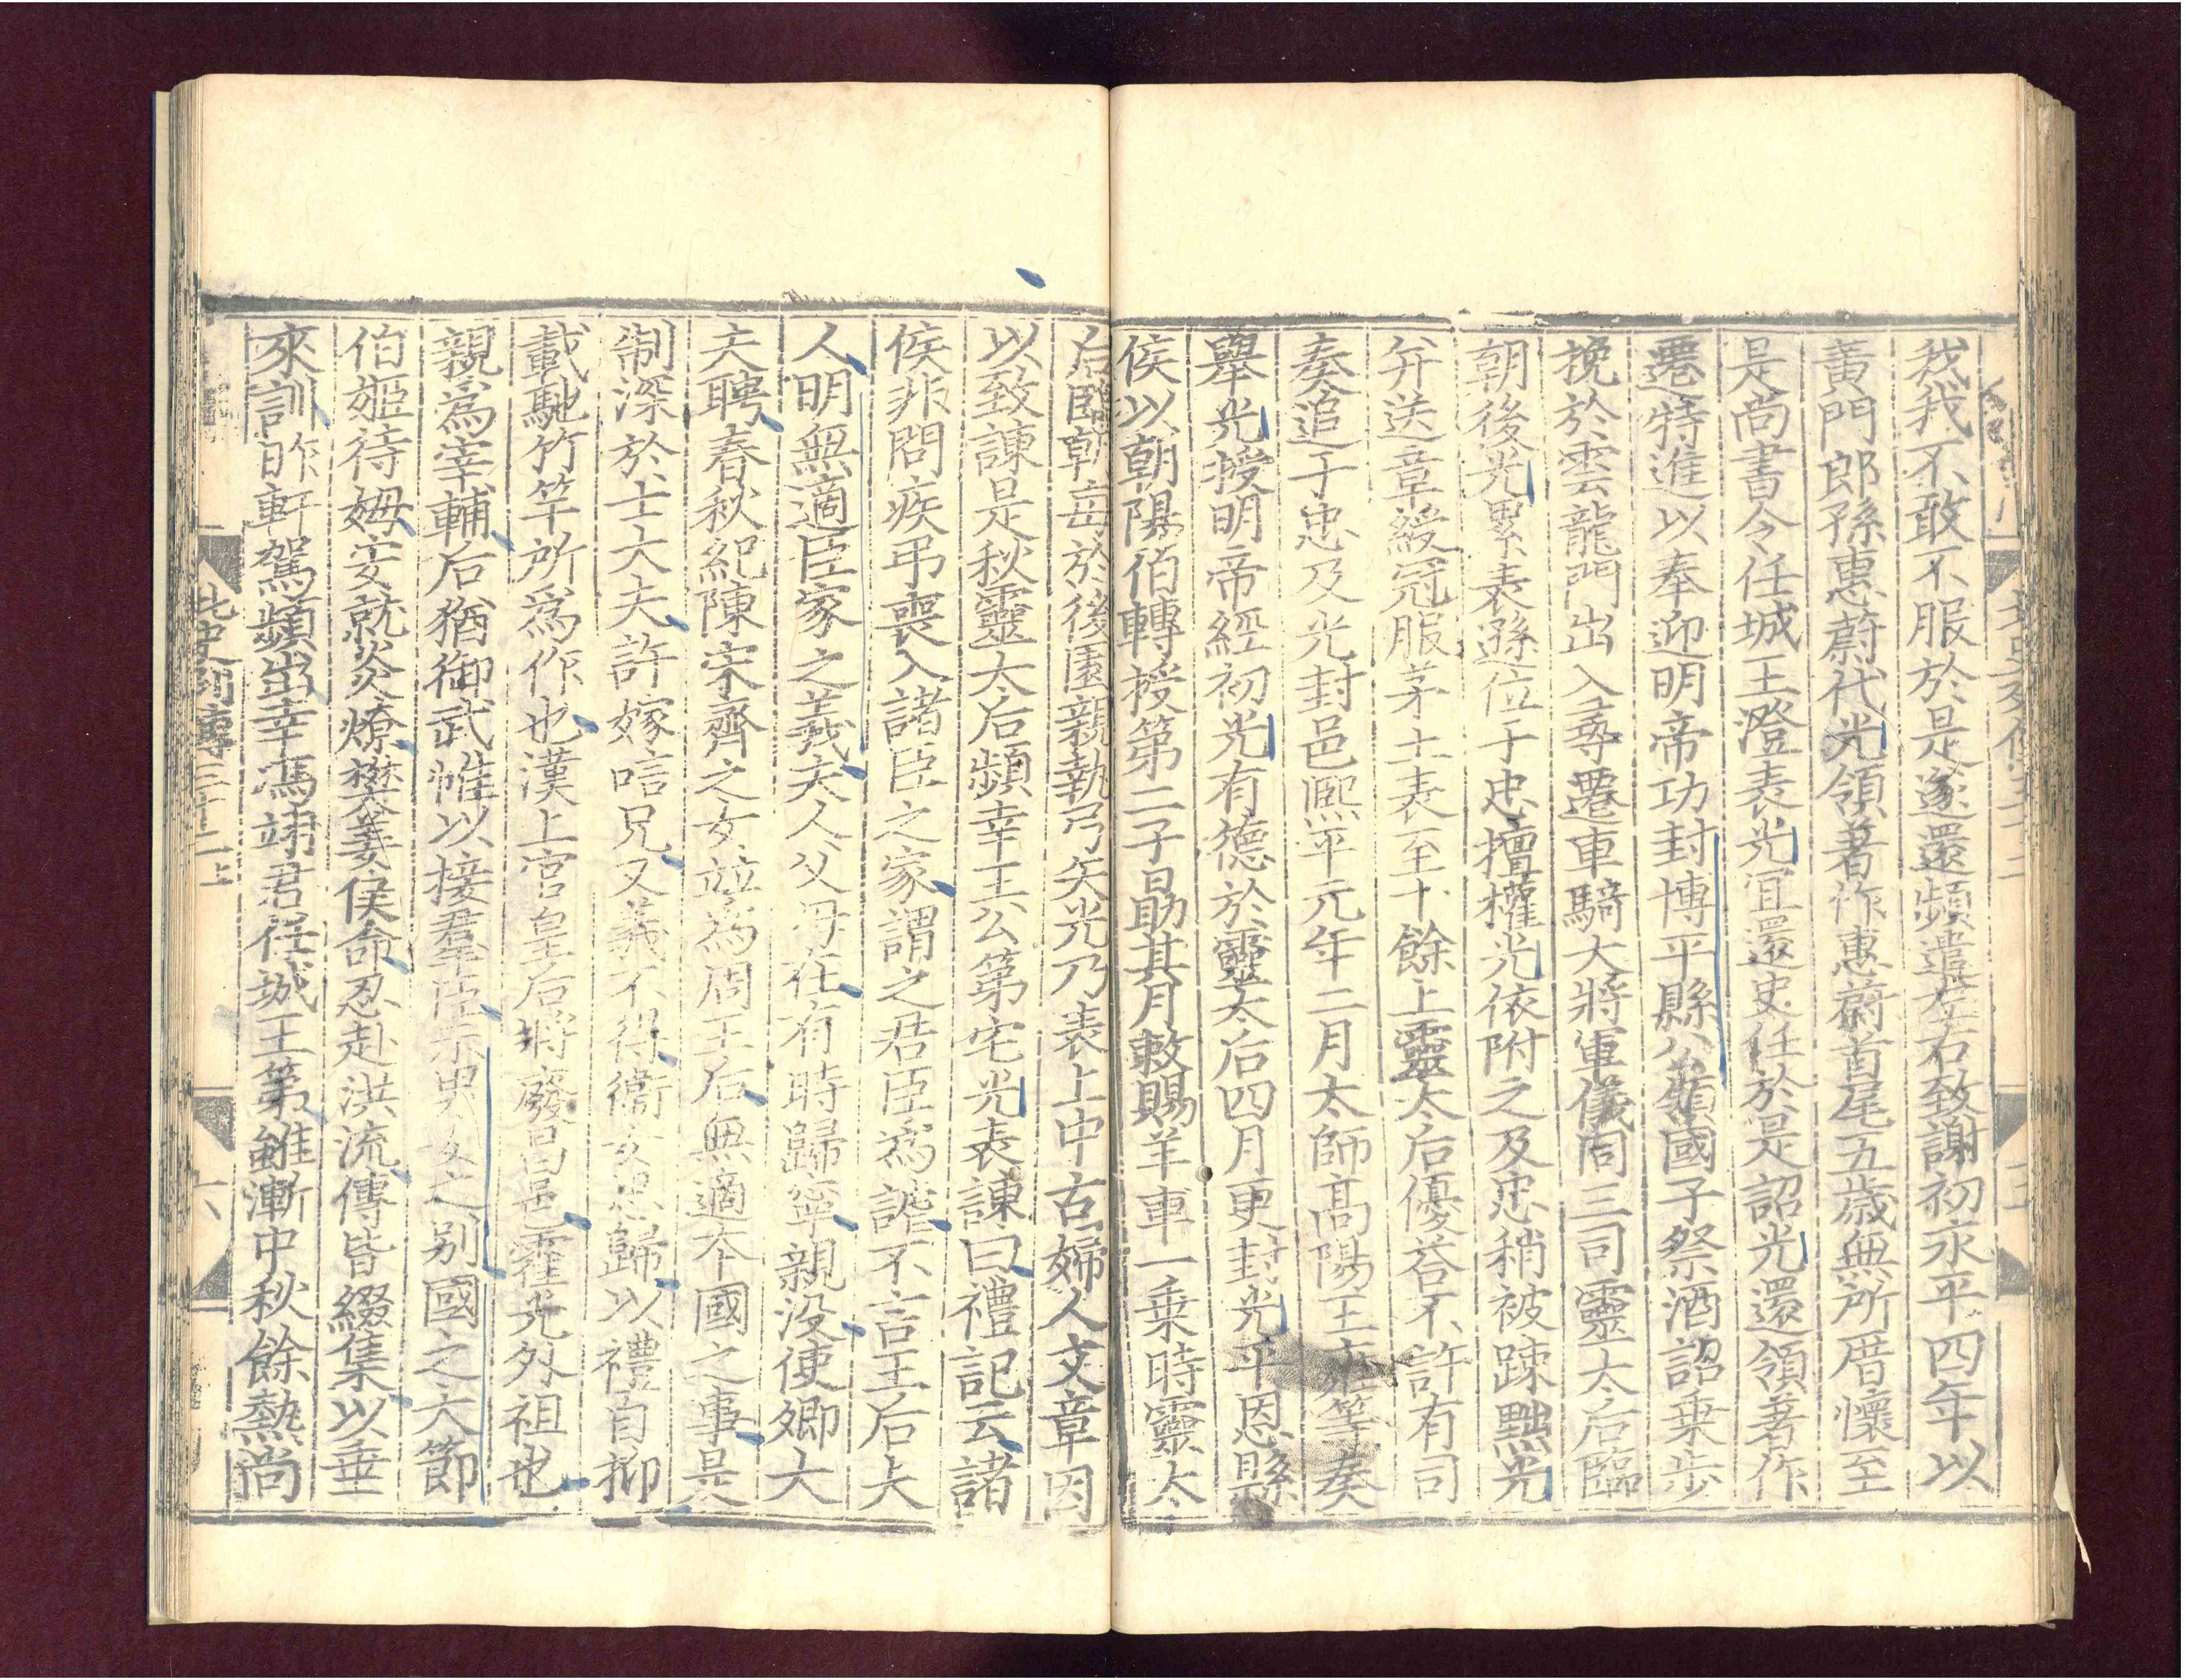 我我不敢不服於是遂還頻遣左右致謝初永平四年以
黃門郎孫惠蔚代光領著作惠蔚首尾五歲無所厝懷至
是尚書令任城王澄表光宜還史任於是詔光還領著作
遷特進以奉迎明帝功封博平縣公領國子祭酒詔乗步
挽於雲龍門出入尋遷車騎大將軍儀同三司靈太后臨
朝後光累表遜位于忠擅權光依附之及忠稍被踈黜光
并送章綬冠服茅土表至十餘上靈太后優荅不許有司
奏追于忠及光封邑熈平元年二月太師髙陽王雍等奏
舉光授明帝經初光有德於靈太后四月更封光平恩縣
侯以朝陽伯轉授第二子勗其月敕賜羊車一乗時靈太
后臨朝每於後園親執弓矢光乃表上中古婦人文章因
以致諫是秋靈太后頻幸王公第宅光表諫曰禮記云諸
侯非問疾弔喪入諸臣之家謂之君臣為謔不言王后夫
人明無適臣家之義夫人父母在有時歸寧親沒使卿大
夫聘春秋紀陳宋齊之女竝為周王后無適本國之事是
制深於士大夫許嫁唁兄又義不得衛女思歸以禮自抑
載馳竹竿所為作也漢上官皇后將廢昌邑霍光外祖也
親為宰輔后猶御武帷以接羣臣示男女之別國之大節
伯姬待姆安就炎燎樊姜侯命忍赴洪流傳皆綴集以垂
來訓昨軒駕頻出幸馮翊君任城王第雖漸中秋餘熱尚
北史列傳三十二上
六